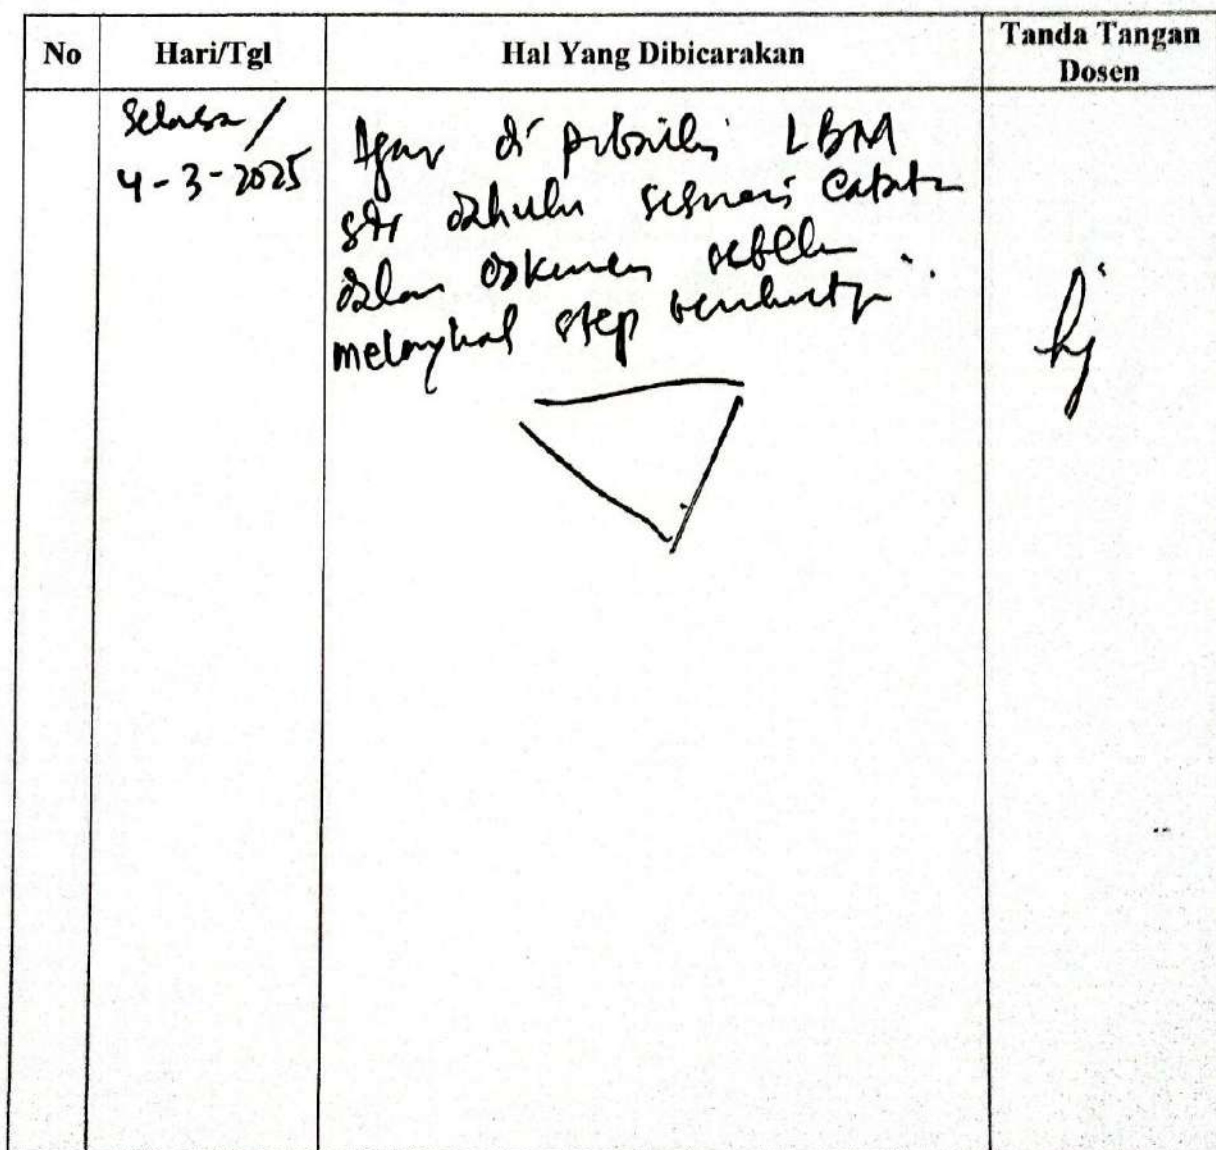 No Hari/Tgl Hal Yang Dibicarakan Tanda Tangan Dosen
Selasa /
4-3-2025
Agar di perbaiki LBM
dahulu sesuai catatan
dalam dokumen sebelum
melangkah step berikutnya